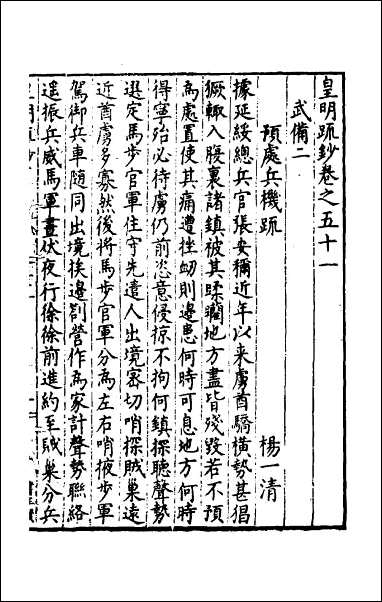 皇明疏鈔卷之五十一
武備二
預處兵機疏 楊一清
據延綏總兵官張安稱近年以来虜酋驕橫勢甚猖
獗輙入腹裏諸鎮被其蹂躪地方盡皆殘毀若不預
為處置使其痛遭挫衂則邊患何時可息地方何時
得寧殆必待虜仍前恣意侵掠不拘何鎮探聽聲勢
選定馬步官軍住守先遣人出境密切哨探賊巢遠
近酋虜多寡然後將馬步官軍分為左右哨掖步軍
駕御兵車随同出境挨邊劄營作為家計聲勢聯絡
遥振兵威馬軍晝伏夜行徐徐前進約至賊巢分兵